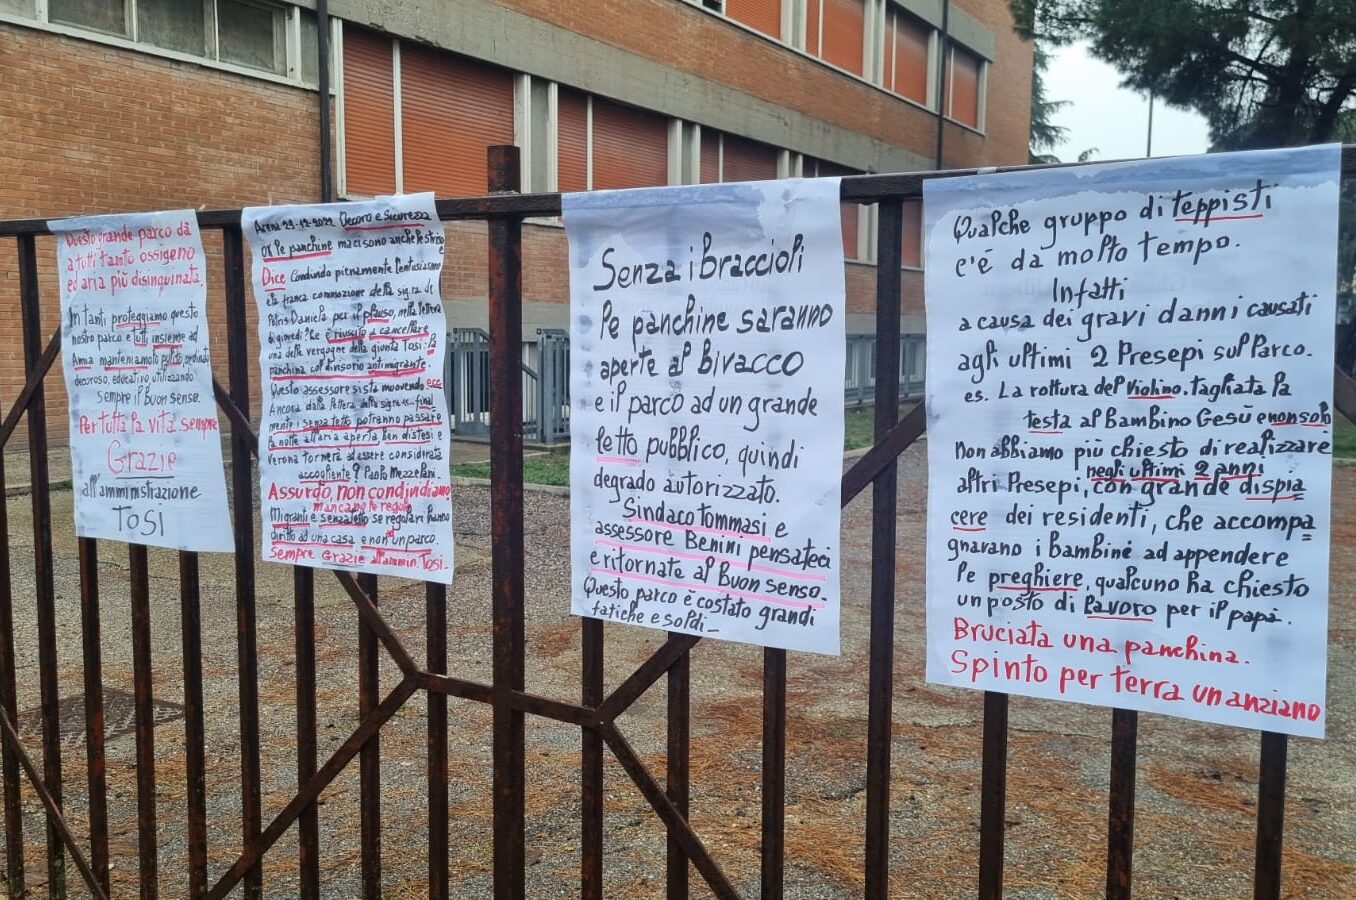 Questo grande parco dà
a tutti tanto ossigeno
ed aria più disinquinata.
In tanti proteggiamo questo
nostro parco e tutti insieme ad
Amia manteniamolo pulito, profumato
decoroso, educativo utilizzando
sempre il buon senso.
Per tutta la vita sempre
Grazie
all'amministrazione
TOSI
Decoro e Sicurezza
OK le panchine ma ci sono anche le strade
Dice Condivido pienamente l'entusiasmo
e la franca commozione della sig.ra di
Daniela per il plauso, nella lettera
di giovedì "Che è riuscito a cancellare
una delle vergogne della giunta Tosi: la
panchina col divisorio antimigrante.
Questo assessore si sta muovendo, ecc
Ancora dalla lettera della sig.ra ecc. final
mente i senza tetto potranno passare
la notte all'aria aperta ben distesi e
Verona tornerà ad essere considerata
accogliente? Paolo Mezzelani.
Assurdo, non condividiamo
mancano le regole
Migranti e senzatetto se regolari hanno
diritto ad una casa e non un parco.
Sempre Grazie all'ammin. Tosi.
Senza i braccioli
le panchine saranno
aperte al bivacco
e il parco ad un grande
letto pubblico, quindi
degrado autorizzato.
Sindaco Tommasi e
assessore Benini pensateci
e ritornate al Buon senso.
Questo parco è costato grandi
fatiche e soldi
Qualche gruppo di teppisti
c'é da molto tempo.
Infatti
a causa dei gravi danni causati
agli ultimi 2 Presepi sul Parco.
es. La rottura del violino. tagliata la
testa al Bambino Gesù e non solo
Non abbiamo più chiesto di realizzare
negli ultimi 2 anni
altri Presepi, con grande dispia
cere dei residenti, che accompa
gnavano i bambini ad appendere
le preghiere, qualcuno ha chiesto
un posto di lavoro per il papà.
Bruciata una panchina.
Spinto per terra un anziano